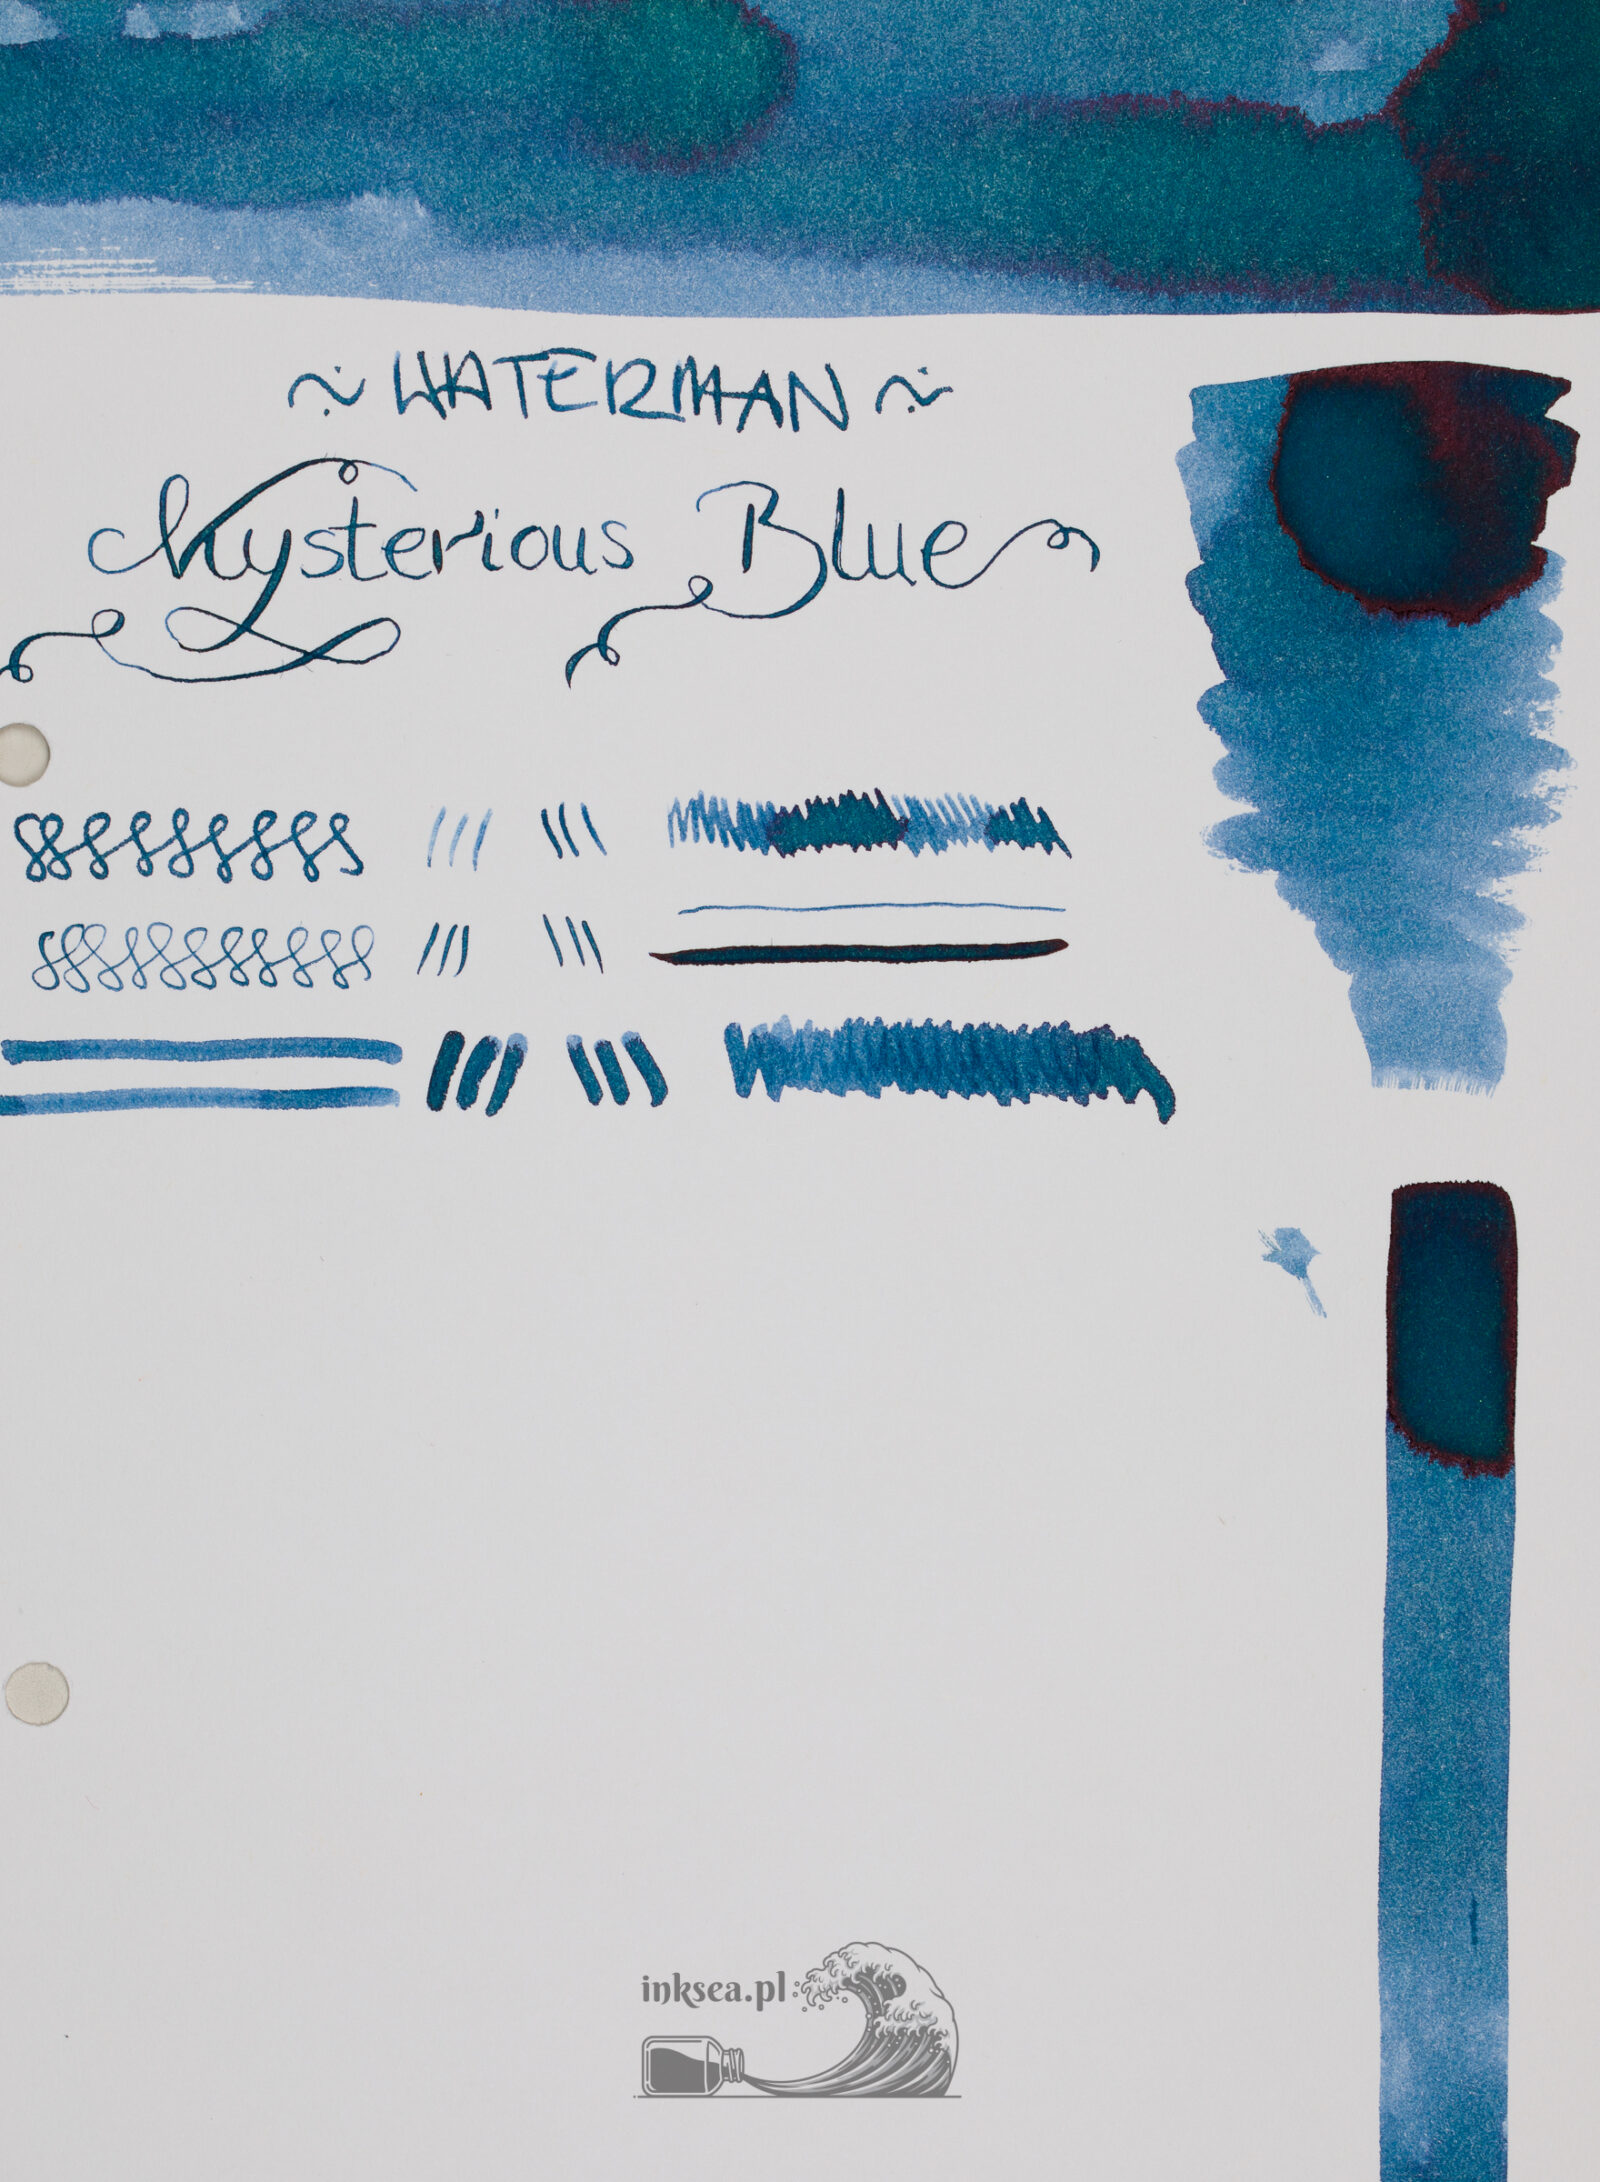 ~ WATERMAN ~
Mysterious Blue
inksea.pl